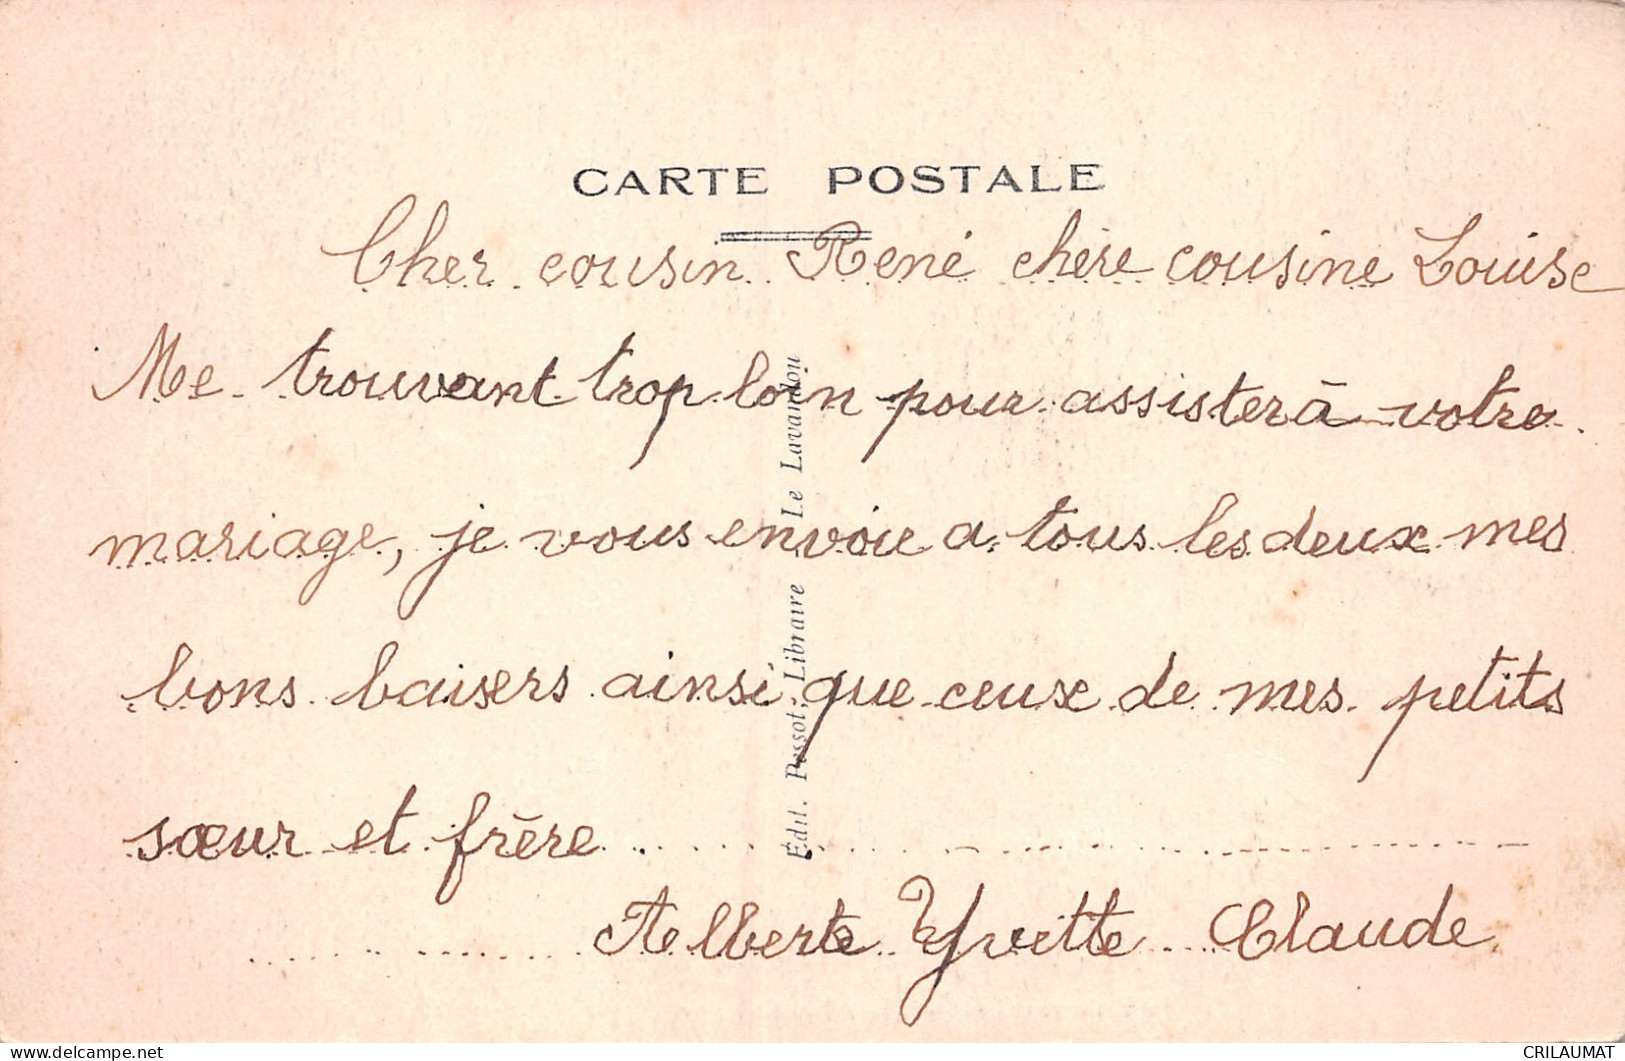 CARTE POSTALE
Cher cousin René chère cousine Louise
Me trouvant trop loin pour assister à votre
mariage, je vous envoie a tous les deux mes
bons baisers ainsi que ceux de mes petits
sœur et frère
Alberte Yvette Claude
Edit. Possot, Libraire Le Lavandou
CRILAUMAT